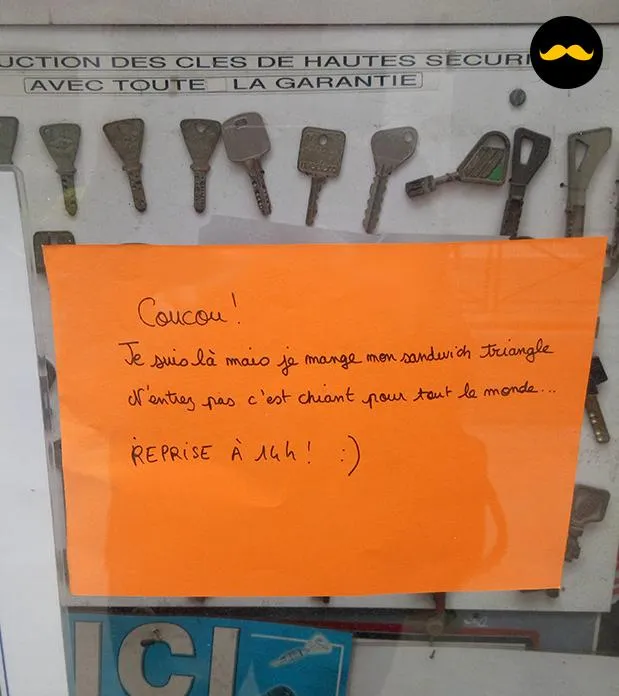 UCTION DES CLES DE HAUTES SECURI
AVEC TOUTE LA GARANTIE
Coucou!
Je suis là mais je mange mon sandwich triangle
N'entrez pas c'est chiant pour tout le monde...
REPRISE À 14h! :)
ICI